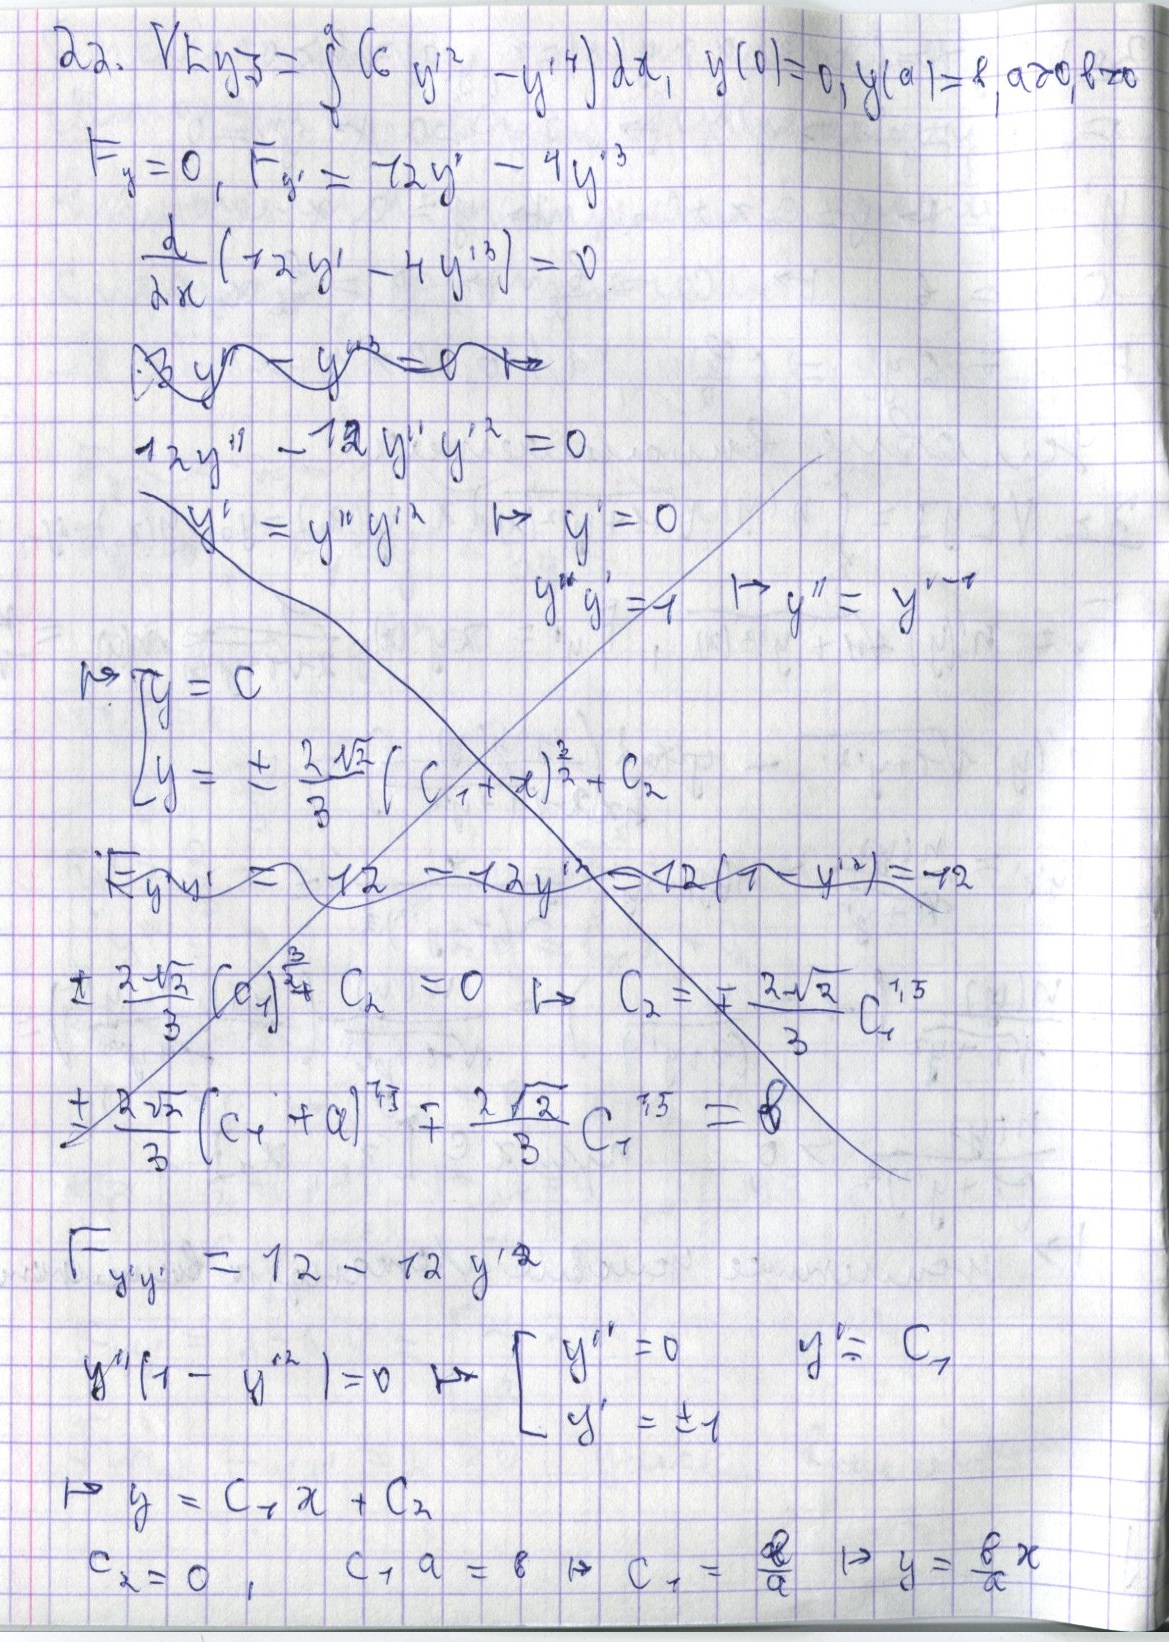 22. V[y] = ∫₀ᵃ (6 y'² - y'⁴) dx, y(0)=0, y(a)=b, a>0, b>0
F_y = 0, F_y' = 12y' - 4y'³
d/dx (12y' - 4y'³) = 0
3y' - y'³ = 0 ↦
12y'' - 12y''y'² = 0
y' = y''y'² ↦ y' = 0
y''y' = 1 ↦ y'' = y'⁻¹
↦ [ y = C
y = ± 2√2/3 (C₁ + x)^(3/2) + C₂
F_y'y' = 12 - 12y'² = 12(1 - y'²) = 12
± 2√2/3 (C₁)^(3/2) + C₂ = 0 ↦ C₂ = ∓ 2√2/3 C₁^1,5
± 2√2/3 (C₁ + a)^1,5 ∓ 2√2/3 C₁^1,5 = b
F_y'y' = 12 - 12y'²
y''(1 - y'²) = 0 ↦ [ y'' = 0 y' = C₁
y' = ±1
↦ y = C₁x + C₂
C₂ = 0, C₁a = b ↦ C₁ = b/a ↦ y = b/a x